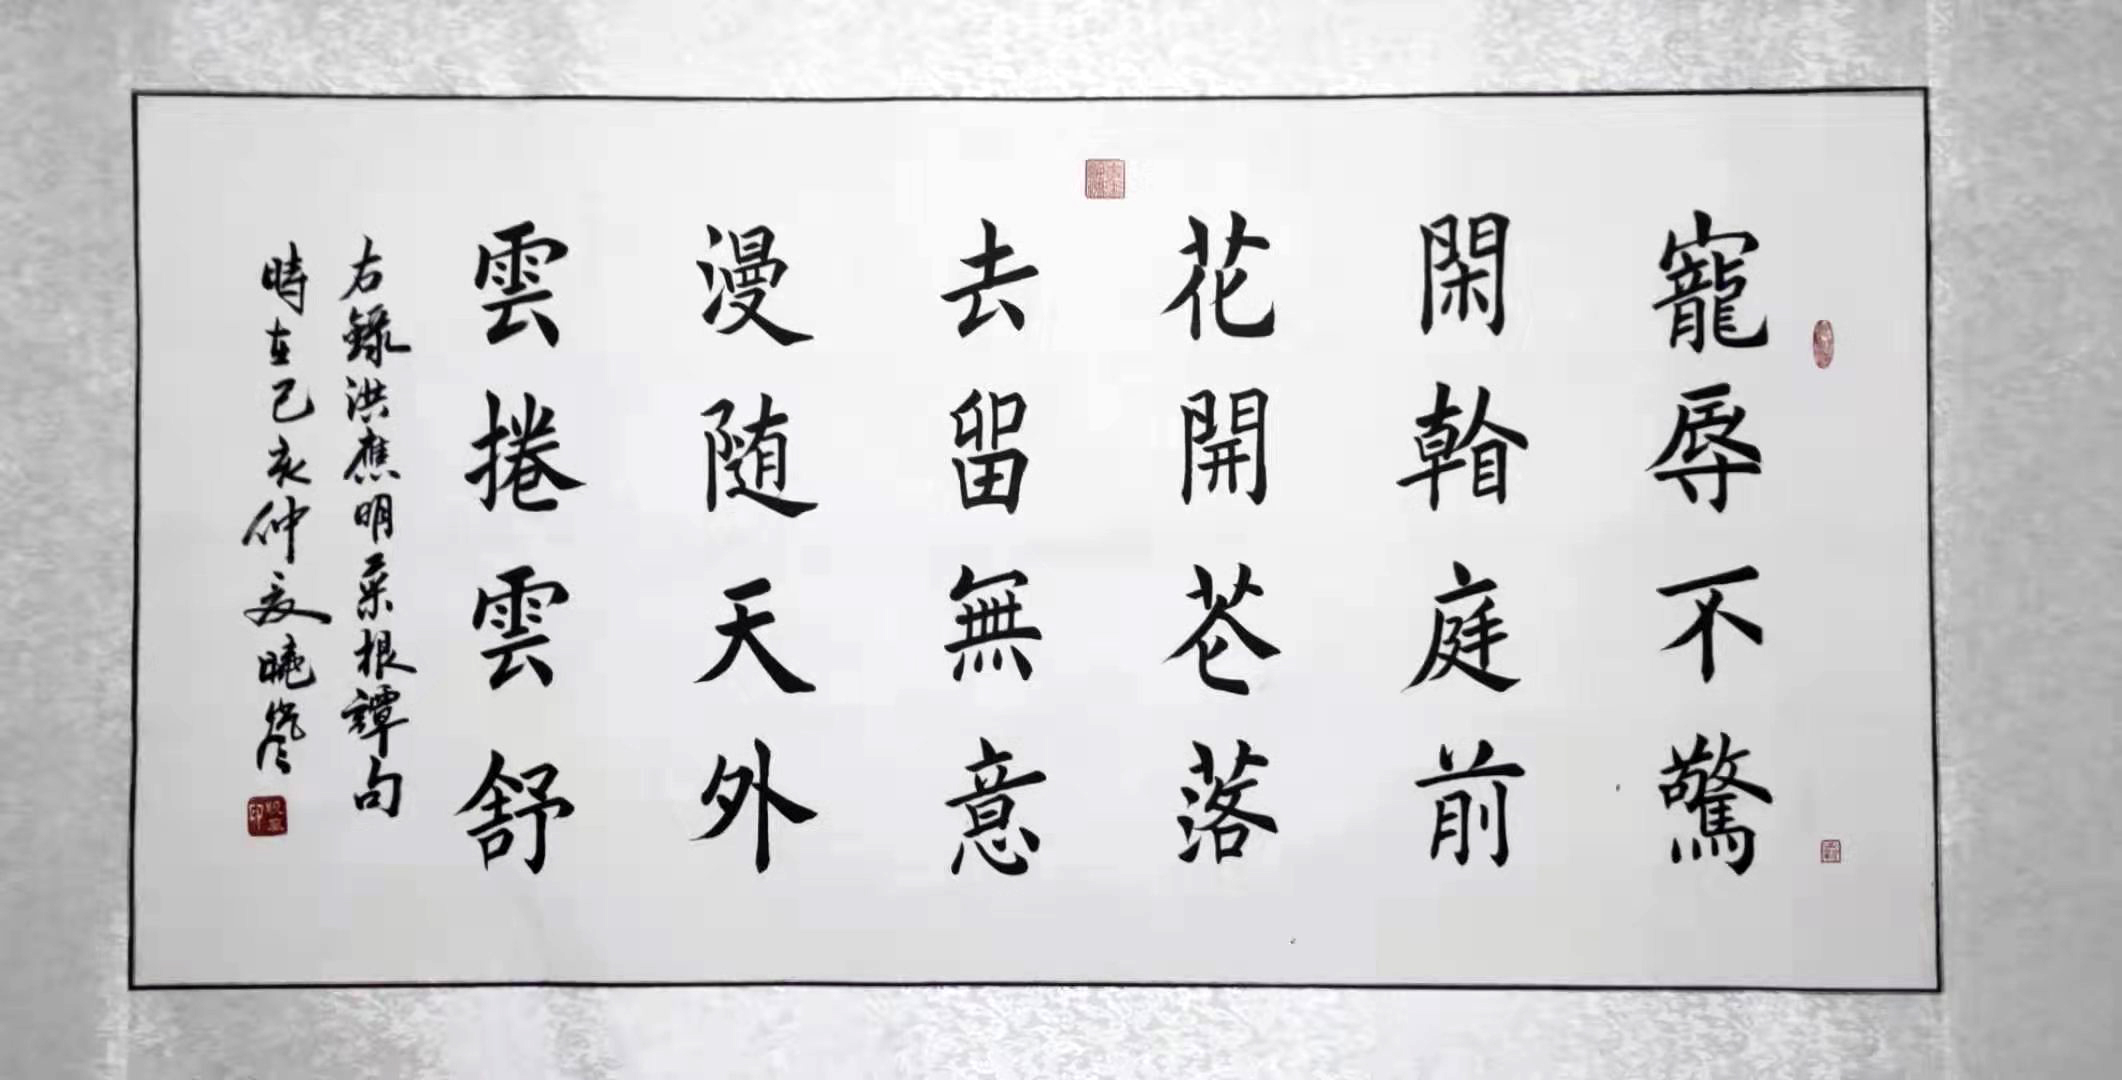 寵辱不驚
閑看庭前
花開芲落
去畱無意
漫随天外
雲捲雲舒
右録洪應明菜根譚句
時在己亥仲夏曉